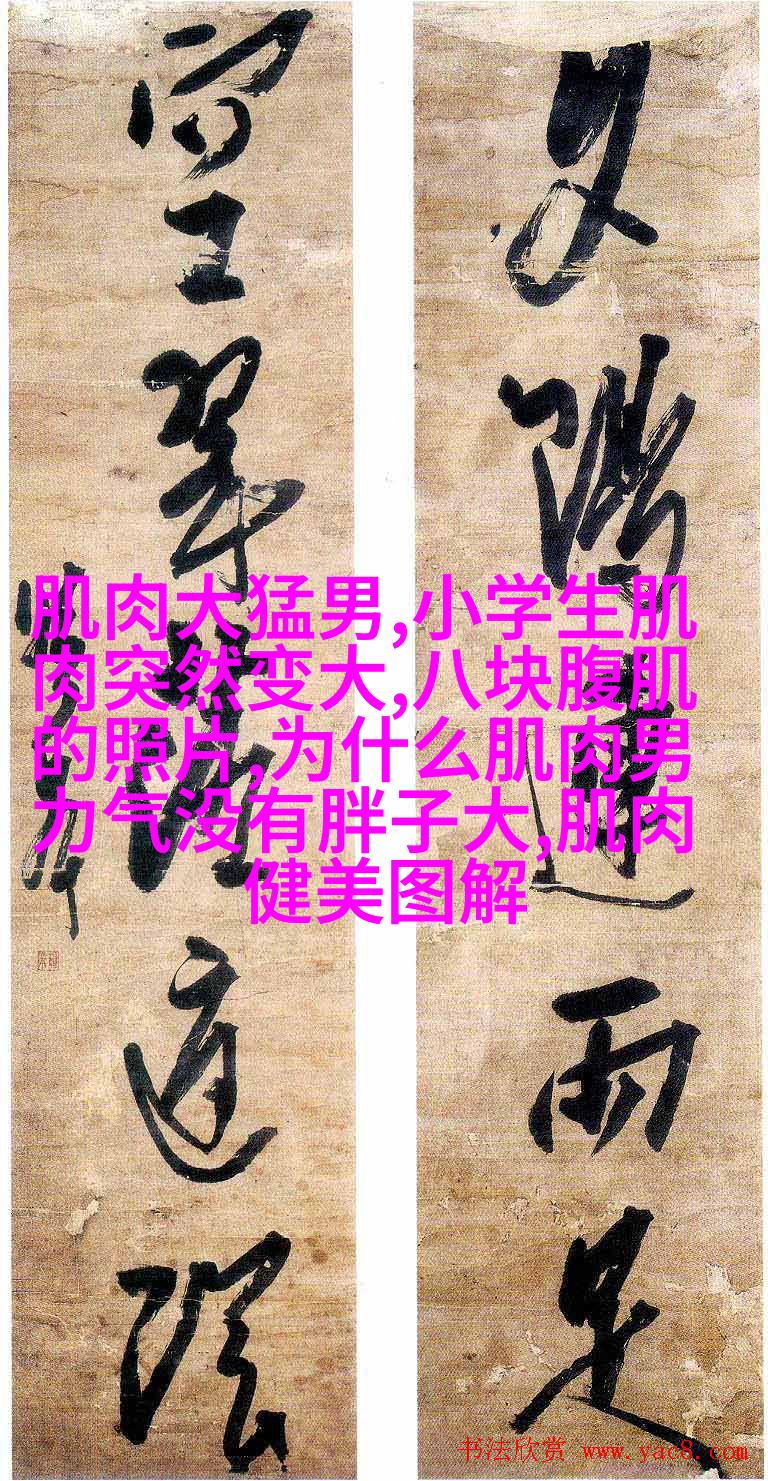 夕陽連雨足
空翠落庭陰
肌肉大猛男,小学生肌
肉突然变大,八块腹肌
的照片,为什么肌肉男
力气没有胖子大,肌肉
健美图解
书法欣赏 www.yac8.com